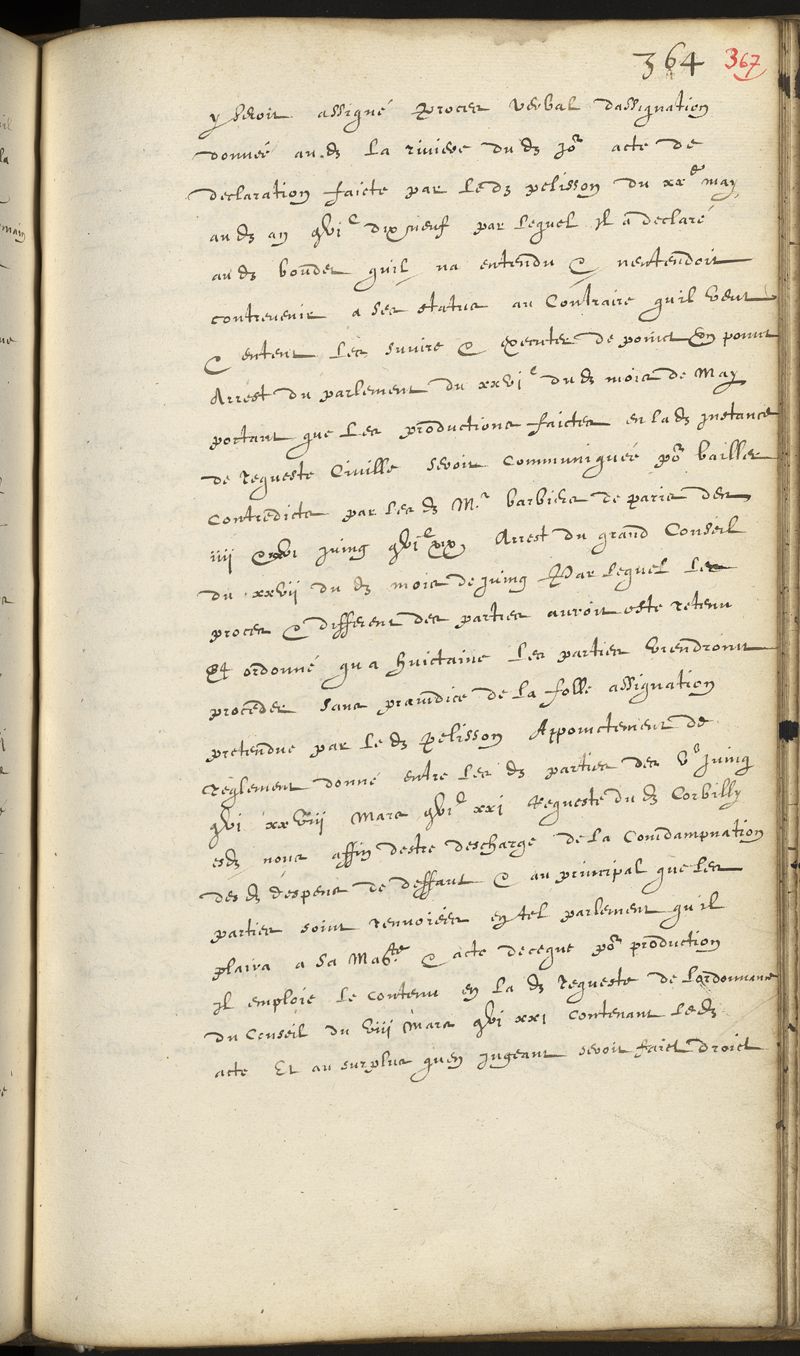 364 367
y seroit assigné proces verbal dassignation
donnée aud. la riviere dud. jor acte de
declaration faicte par led. pelisson du xxe may
aud. an gvic dix neuf par lequel Il a declaré
aud. boudet quil na entendu & nentendoit
contrevenir a ses status au Contraire quil veut
& entent les suivre & executer de poinct en poinct
Arrest du parlement du xxvie dud. mois de May
portant que les productions faictes en lad. instance
de requeste Civille seroit Communiquée por bailler
Contredicts par les d. Mrs barbiers de paris des
iiij & juing gvic xix Arrest du grand Conseil
du xxvii du d. mois de juing Par lequel les
proces & different des parties auroit esté retenu
Et ordonné qua huictaine les parties viendroint
proceder sans preiudice de la folle assignation
pretendue par le d. pelisson Appoinctement de
reglement donné entre les d. parties des ve juing
gvi xxviij Mars gvic xxi Requeste du d. Corbilly
esd. noms affin destre descharge de la Comdampnation
des d. despens de deffaut & au principal que les
parties soint renvoiées en tel parlement quil
plaira a sa Magté & acte de ceque por production
il emploie le contenu en la d. requeste de lordonnance
du Conseil du viii Mars gvi xxi contenant led.
acte Et au surplus quen jugeant seroit faict droict